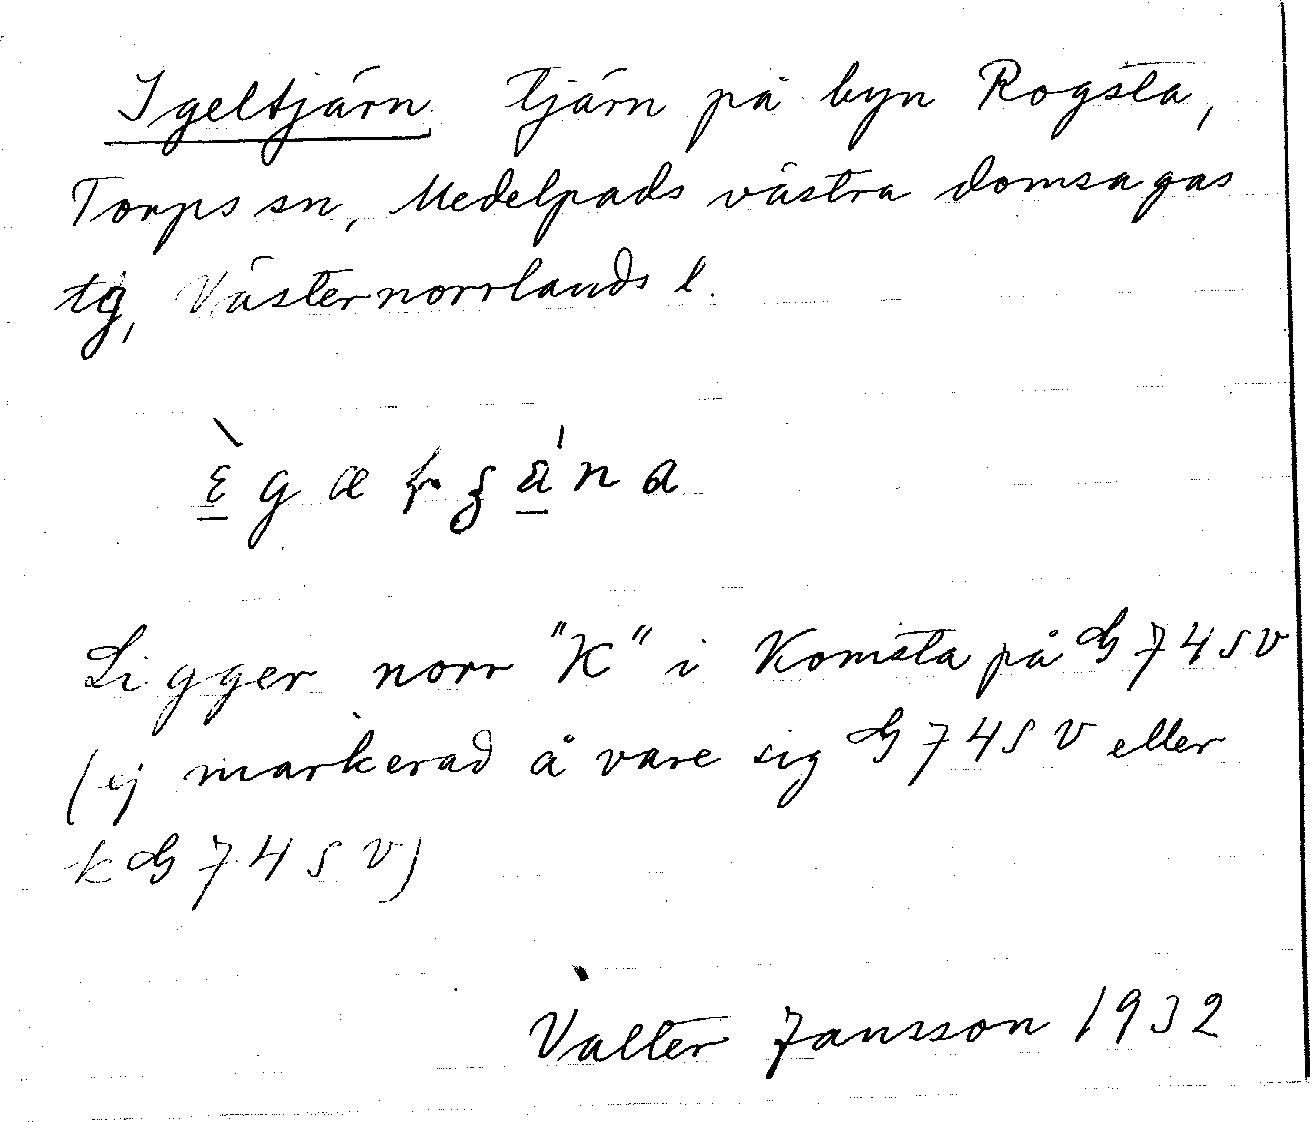 Igeltjärn tjärn på byn Rogsta,
Torps sn, Medelpads västra domsagas
tg, Västernorrlands l.
Ligger norr "K" i Komsta på G 74 SV
(ej markerad å vare sig G 74 SV eller
k G 74 SV)
Valter Jansson 1932